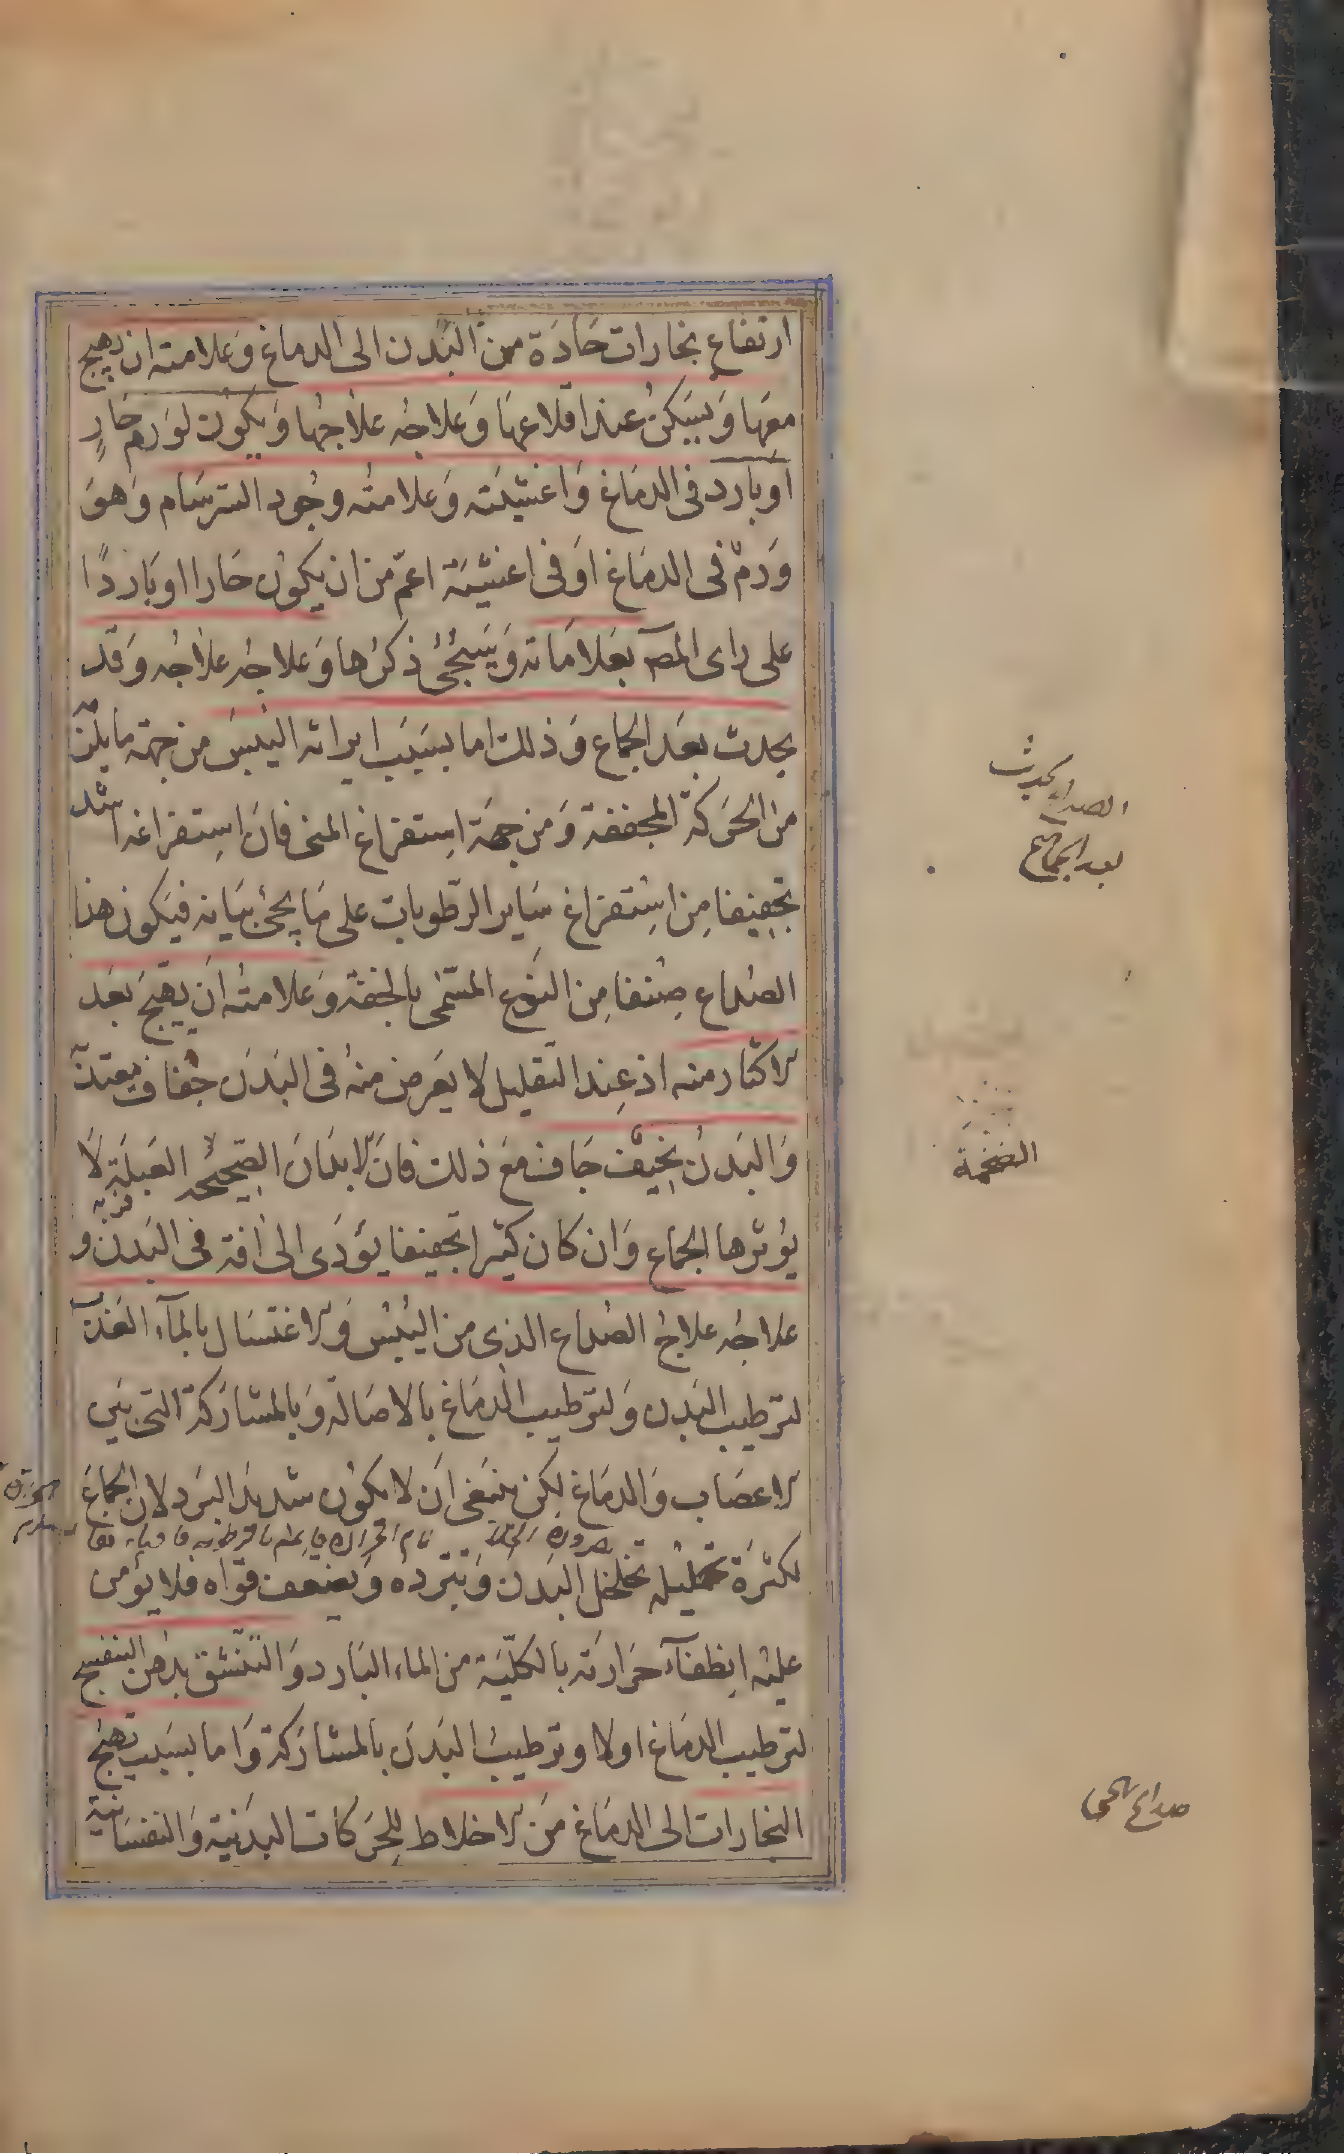 ارتفاع بخارات حَادَة من البَدن الى الدماغ وَعلامته ان يهيج
معَها وَيسَكنُ عند اقلاعهَا وَعلاجهُ علاجُها وَيكون لوَرم حَارٍ
اَو بارد فى الدمَاغ وَاغشيَته وَعلامتُه وجُود السَرسَام وَهوَ
وَرمٌ فى الدمَاغ اوَ فى اغشيَتة اعمّ من ان يكوُن حَارا او بَاردًا
على راى المصَ بعَلامَاته وَسَيَجُئُ ذكرُها وَعلاجُه علاجُه وَقَد
يحدث بعَد الجماع وَذلك اما بسَبَب ايراثه اليُبسَ من جهَة ما يلزمَه
منَ الحَركة المجففة وَمن جهَة اِستفراغ المنى فانَ اِستفراغه اشد
تجفيفا مِن اِستفراغ سَاير الرَطوبات على مَا يجئ بيَانه فيَكون هذا
الصُداع صِنفا مِن النَوع المسَمى بالخفة وَعلامتُه اَن يهَيجَ بعَد
الاكثار منه اذ عِند التَقليل لا يعَرض منهُ فى البَدَن جفاف يعتدّ به
وَالبَدنُ نحَِيف جَاف معَ ذلك فانَ الابدَانَ الصَحيحُه العَبلَة لاَ
يُؤثرها الجماع وَان كان كثيرا تجفيفا يؤدَى الى اٰفة فى البَدن و
علاجُه علاجُ الصُداع الذى من اليُبْس وَالاغتسَال بالمآء العَذب
لترطيب البَدن وَلترطيب الدمَاغ بالاصَالة وَبالمشارَكة التى بَين
الاعصَاب وَالدمَاغ لكن ينبَغى اَن لا يكوُن شديد البَرد لان الجماعَ
لكثرَة تحليله يخلخل البَدنَ وَيبَرّدهُ وَيُضعف قوَاه فلا يؤمن
عليه اِنطفآء حَرارَته بالكليّة من الماء البَارد وَالتَنشق بدُهن البنفسج
لترطيب الدمَاغ اولا وترطيبُ البَدَن بالمشارَكة وَاما بسَبَب تهيجُ
البخارات الى الدمَاغ منَ الاخلاط للِحَركات البدَنية وَالنفسَانية
الصداع يحدث
بعد الجماع
الضخمة
صداع الحمى